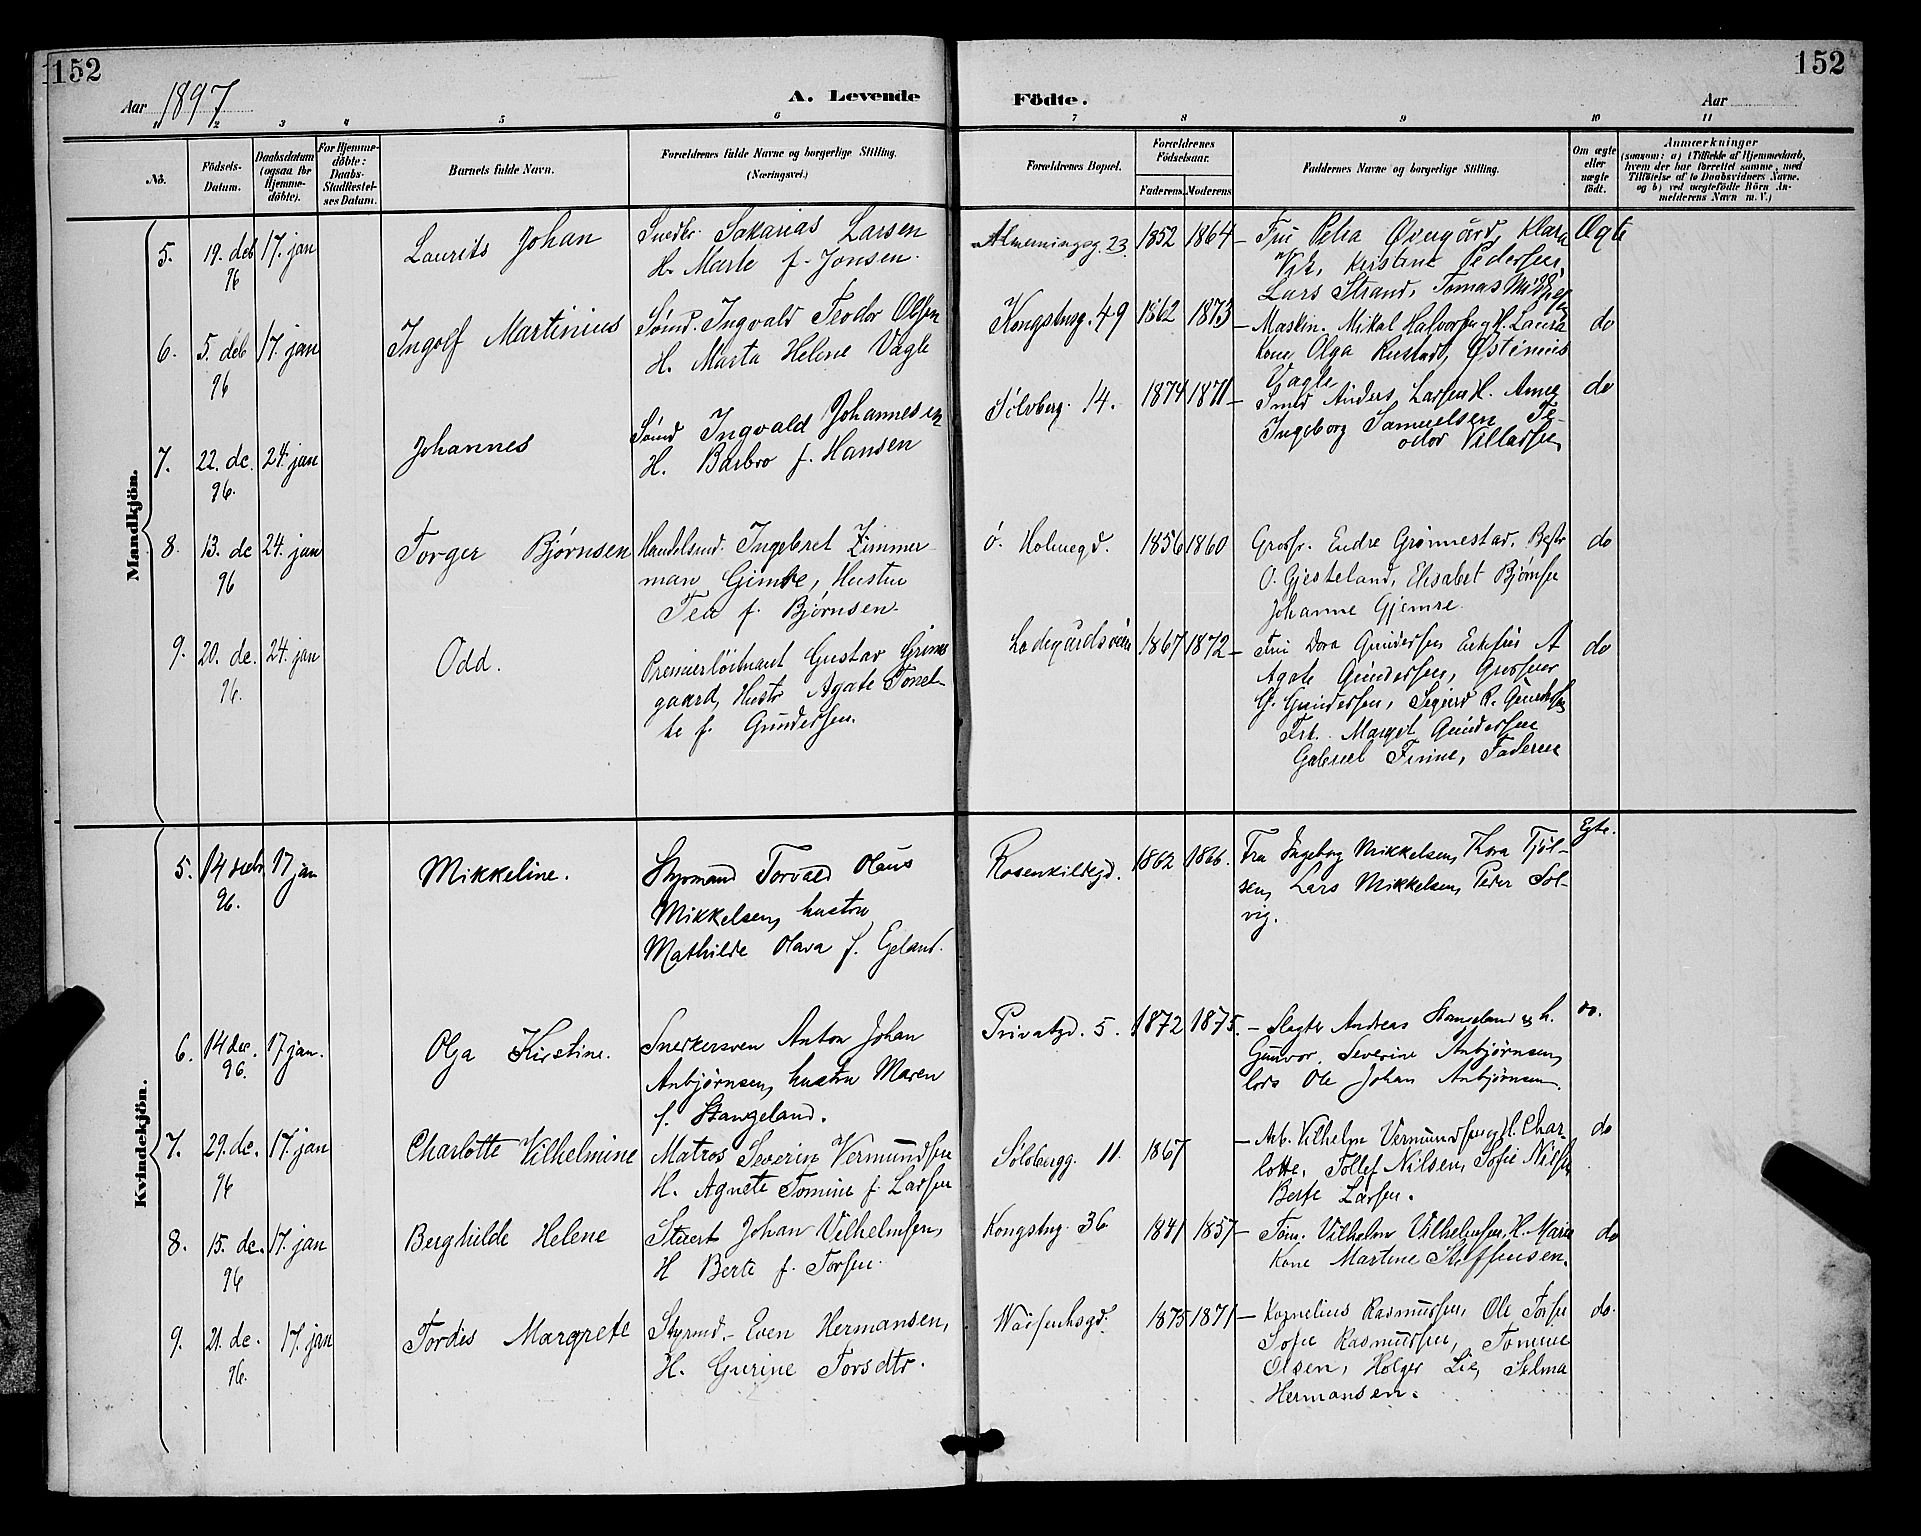 152
152
Aar 1897
A. Levende Födte.
Aar
1 2 3 4 5 6 7 8 9 10 11
No.
Födsels-Datum.
Daabsdatum (ogsaa for Hjemme-döbte).
For Hjemme-döbte: Daabs-Stadfæstel-ses Datum.
Barnets fulde Navn.
Forældrenes fulde Navne og borgerlige Stilling.
(Næringsvei.)
Forældrenes Bopæl.
Forældrenes Födselsaar.
Faderens. Moderens.
Faddernes Navne og borgerlige Stilling.
Om ægte eller uægte födt.
Anmærkninger
(saasom: a) i Tilfælde af Hjemmedaab,
hvem der har forrettet samme, med
Tilföielse af to Daabsvidners Navne.
og b) ved uægtefödte Börn An-
melderens Navn m. V.)
Mandkjön.
5. 19. deb 96 17. jan Laurits Johan
Snedk. Sakarias Larsen
H. Marte f. Jonsen.
Almenningsg. 23. 1852 1864
– Fru Petra Øvergård, Klara
Vik, Kristine Pedersen,
Lars Strand, Tomas
Ægte
6. 5. deb 96 17. jan Ingolf Martinius
Sömd. Ingvald Teodor Olsen
H. Marta Helene Vagle
Kongsbug. 49 1862 1873
– Maskin. Mikal Halvorsen og H. Laura
Kone Olga Rustad, Østenius
Vagle
do
7. 22. de. 96. 24. jan Johannes
Sömd Ingvald Johannesen
H. Barbro f. Hansen
Sölvberg. 14. 1874 1871
– Smed Anders Larsen H. Anne
Ingeborg Samuelsen Te-
odor Villadsen
do
8. 13. de 96 24. jan Torger Bjørnsen
Handelsmd. Ingebret Zimmer-
man Gimre, Hustru
Tea f. Bjørnsen.
ö. Holmegd. 1856 1860
Grosr. Endre Grønnestad, Bestr
O. Gjesteland, Elisabet Bjørnsen
Johanne Gjemre.
do
9. 20. de. 96. 24. jan Odd.
Premierløitnant Gustav Grims
gaard, Hustr Agate Tonet-
te f. Gundersen.
Ladegårdsveien 1867 1872
– Fru Dora Gundersen Enkefru A
Agate Gundersen, Grosserer
G. Gundersen, Sigurd R. Gundersen
Frk. Margit Gundersen
Gabriel Finne, Faderen
do
Kvindekjön.
5. 14 deb 96. 17 jan Mikkeline.
Styrmand Torvald Olaus
Mikkelsen, hustru
Mathilde Olava f. Egeland.
Rosenkildegd. 1862 1866.
Fru Ingeborg Mikkelsen, Thora Tjöl-
sen, Lars Mikkelsen, Peder Sol-
vig.
Egte.
6. 14 dec. 96. 17 jan. Olga Kirstine.
Snekkersven Anton Johan
Anbjørnsen, hustru Maren
f. Stangeland.
Privatgd. 5. 1872 1875.
– Slagter Andreas Stangeland og h.
Gunvor, Severine Anbjørnsen,
lods Ole Johan Anbjørnsen.
do.
7. 29. de. 96 17. jan Charlotte Vilhelmine
Matros Severin Vermundsen
H. Agnete Tomine f. Larsen
Sølvbergg. 11. 1867
– Arb. Vilhelm Vermundsen og H. Char-
lotte, Tollef Nilsen, Sofie Nilsen
Berte Larsen.
do
8. 15. de. 96 17. jan Berghilde Helene
Stuert Johan Vilhelmsen,
H Berte f. Torsen.
Kongsbug. 36 1841 1857
– Töm. Vilhelm Vilhelmsen, H. Marie
Kone Martine Steffensen.
do
9. 21. de. 96. 17. jan Tordis Margrete
Styrmd. Even Hermansen,
H. Gurine Torsdtr.
Waisenhsgd. 1875 1871
– Kornelius Rasmussen, Ole Torsen
Sofie Rasmussen, Tomine
Olsen, Holger Lie, Selma
Hermansen.
do.